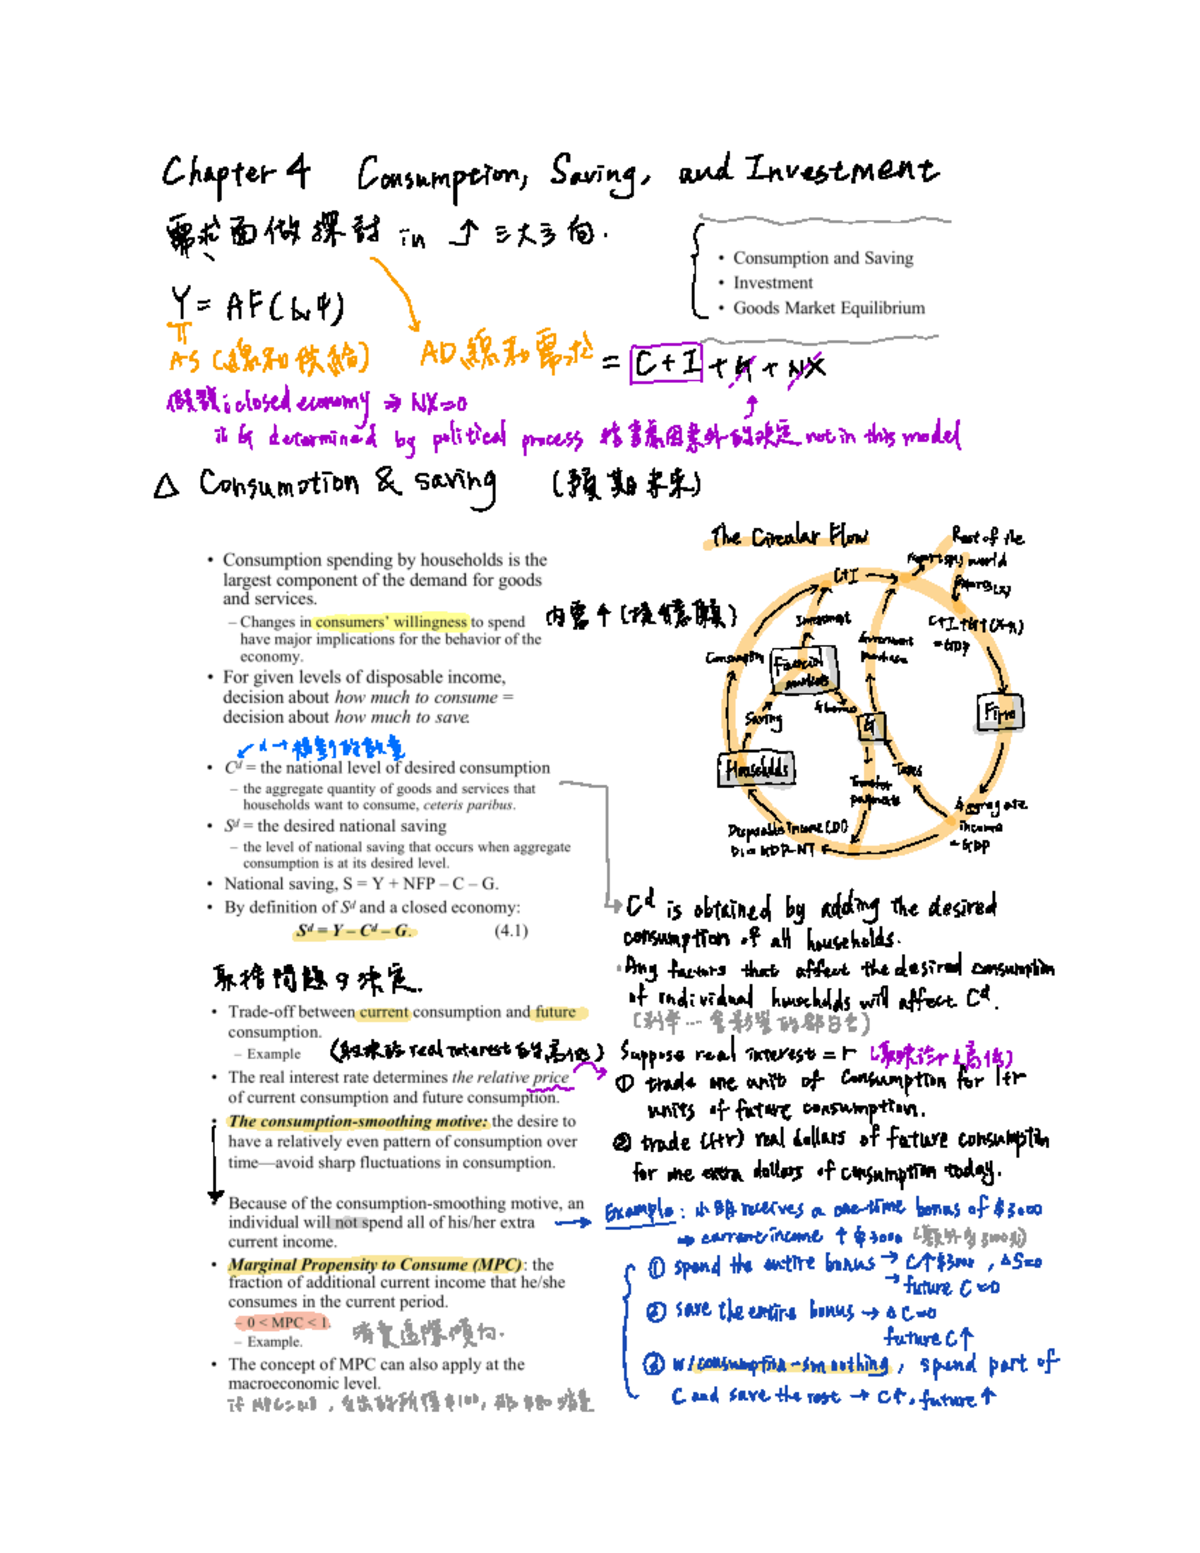 Chapter 4 Consumption, Saving, and Investment
需求面做探討 in ↑ 三大方向.
• Consumption and Saving
• Investment
• Goods Market Equilibrium
Y = AF(L,
AS (總和供給)
AD 總和需求 = C+I + G + NX
假設: closed economy ⇒ NX=0
determined by political process 考慮因素外的決定 not in this model
△ Consumotion & saving (預期未來)
• Consumption spending by households is the
largest component of the demand for goods
and services.
– Changes in consumers' willingness to spend
have major implications for the behavior of the
economy.
內需
• For given levels of disposable income,
decision about how much to consume =
decision about how much to save.
The Circular Flow
Rest of the
world
C+I
Investment
Government
purchase
= GDP
Consumption
Financial
markets
Saving
G
Firm
Households
Transfer
payments
Taxes
Aggregate
income
= GDP
Disposable income (DI)
DI = GDP-NT
d →
• Cᵈ = the national level of desired consumption
– the aggregate quantity of goods and services that
households want to consume, ceteris paribus.
• Sᵈ = the desired national saving
– the level of national saving that occurs when aggregate
consumption is at its desired level.
• National saving, S = Y + NFP – C – G.
• By definition of Sᵈ and a closed economy:
Sᵈ = Y – Cᵈ – G. (4.1)
Cᵈ is obtained by adding the desired
consumption of all households.
• Any factors that affect the desired consumption
of individual households will affect Cᵈ.
取捨問題 決定.
• Trade-off between current consumption and future
consumption.
– Example
(取決於 real interest 的高低)
• The real interest rate determines the relative price
of current consumption and future consumption.
Suppose real interest = r (取決於 r 高低)
① trade one unit of consumption for 1+r
units of future consumption.
② trade (1+r) real dollars of future consumption
for one extra dollars of consumption today.
• The consumption-smoothing motive: the desire to
have a relatively even pattern of consumption over
time—avoid sharp fluctuations in consumption.
Because of the consumption-smoothing motive, an
individual will not spend all of his/her extra
current income.
Example: 小明 receives a one-time bonus of $3000
→ current income ↑ $3000 (額外多3000元)
① spend the entire bonus → C↑$3000, △S=0
→ future C =0
② save the entire bonus → △C=0
future C↑
③ w/consumption-smoothing, spend part of
C and save the rest → C↑, future ↑
• Marginal Propensity to Consume (MPC): the
fraction of additional current income that he/she
consumes in the current period.
– 0 < MPC < 1.
– Example.
消費邊際傾向.
• The concept of MPC can also apply at the
macroeconomic level.